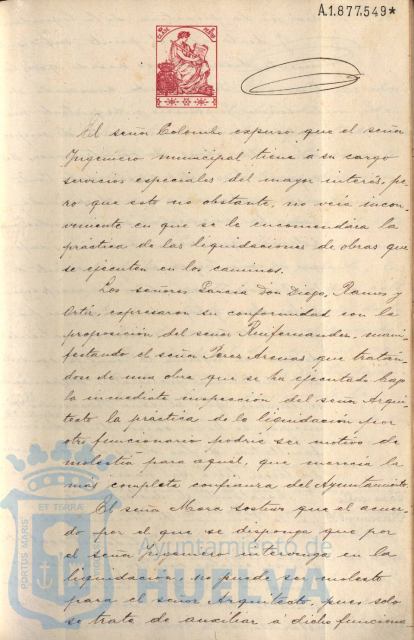 A.1.877.549*
El señor Colombo expuso que el señor
Ingeniero municipal tiene á su cargo
servicios especiales del mayor interés, pe
ro que esto no obstante, no veía incon-
veniente en que se le encomendara la
práctica de las liquidaciones de obras que
se ejecuten en los caminos.
Los señores García Don Diego, Ramos y
Ortiz, expresaron su conformidad con la
proposición del señor Ruifernandez, mani-
festando el señor Perez Arenas que tratan-
dose de una obra que se ha ejecutado bajo
la inmediata inspección del señor Arqui-
tecto la práctica de la liquidación por
otro funcionario podría ser motivo de
molestia para aquel, que merecía la
mas completa confianza del Ayuntamiento.
El señor Mora sostuvo que al acuer-
do por el que se disponga que por
el señor Ingeniero intervenga en la
liquidación, no puede ser molesto
para el señor Arquitecto, pues solo
se trata de auxiliar á dicho funciona
ET TERRA
PORTUS MARIS
Ayuntamiento de
HUELVA